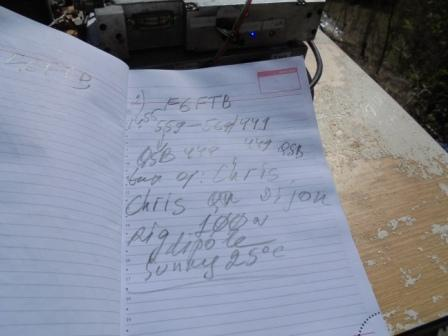 F6FTB
2) F6FTB
559-569/449
QSB 449 449 QSB
op: Chris
Chris QTH Dijon
Rig 100w
dipole
Sunny 25°C